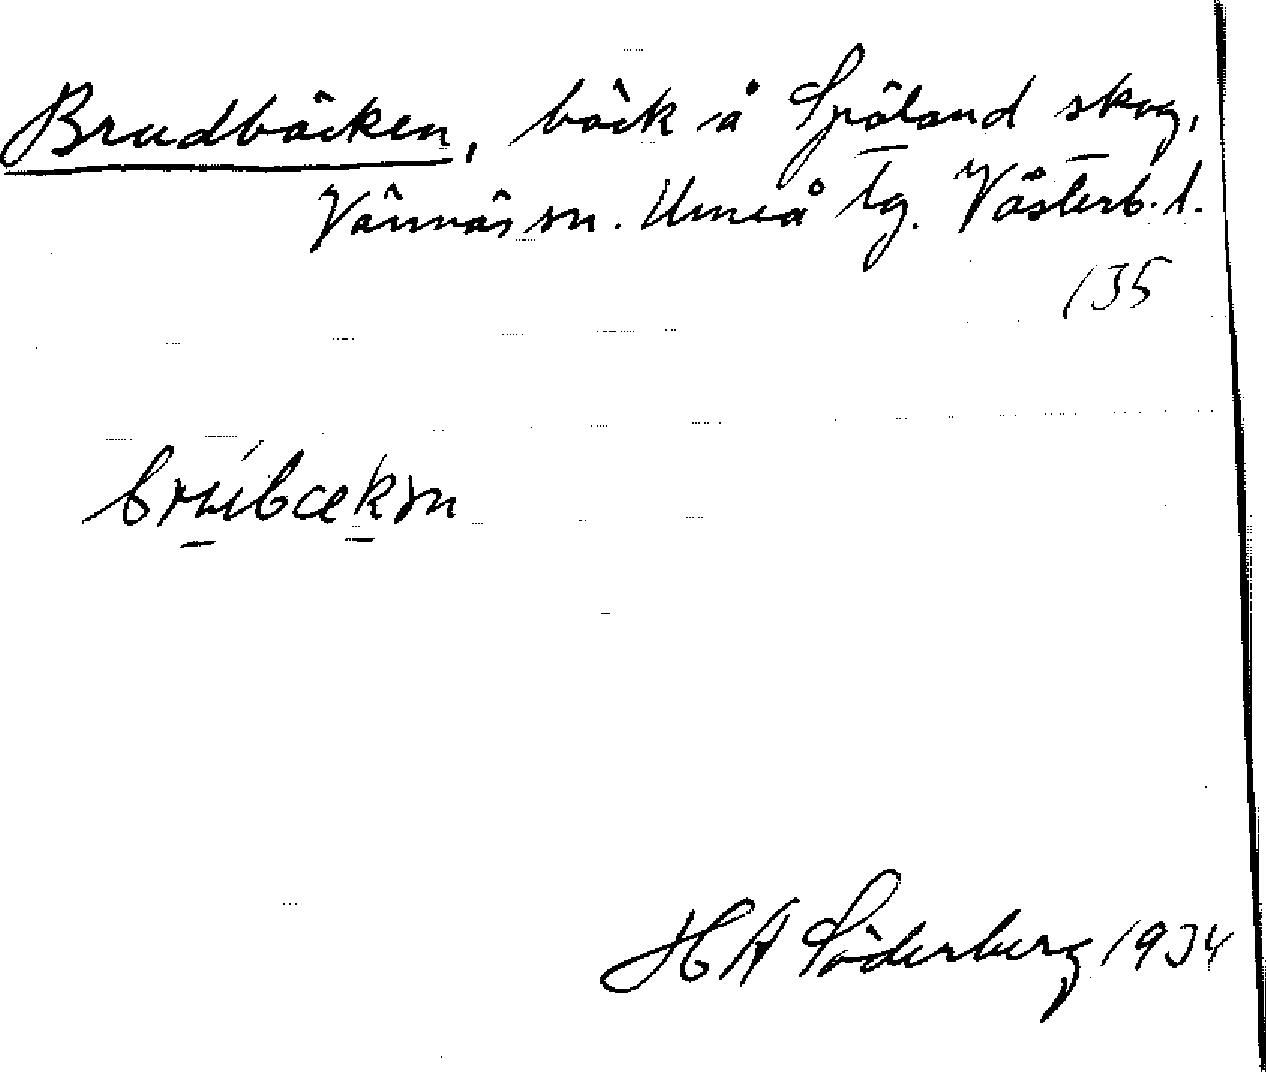 Brudbäcken, bäck å Spöland skog,
Vännäs sn. Umeå tg. Västerb. l.
135
brúbækɘn
H A Söderberg 1934